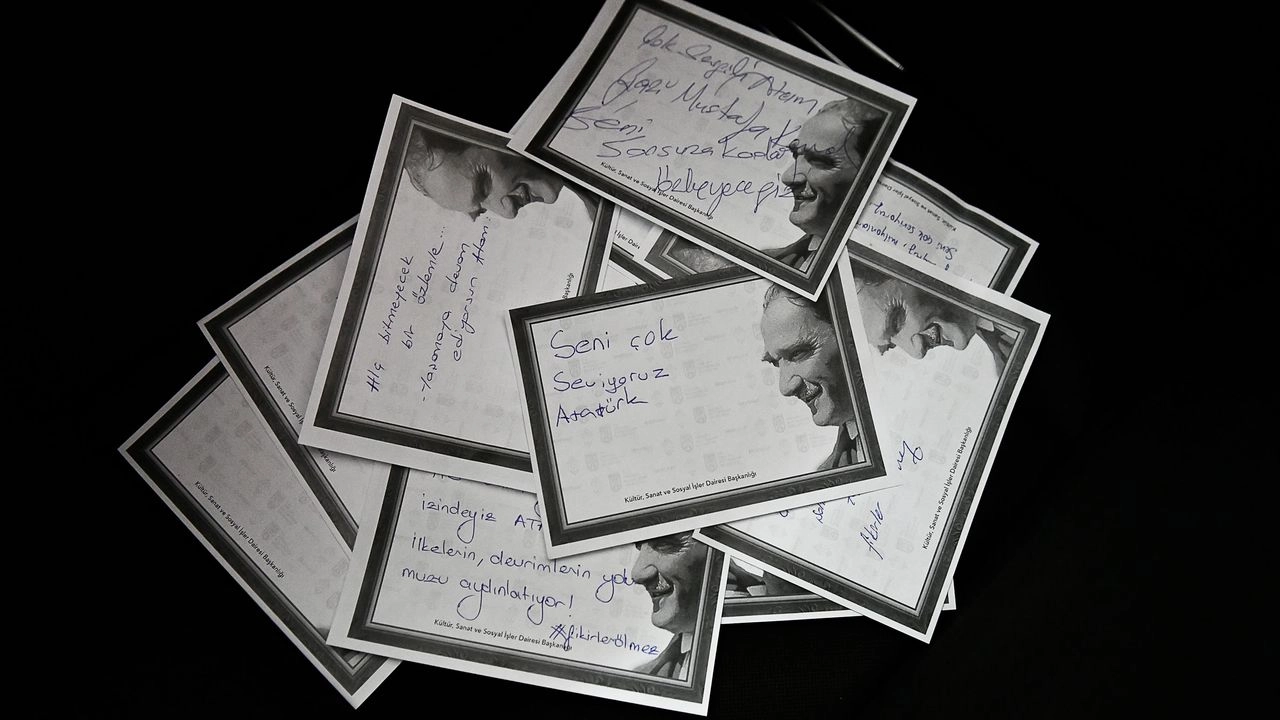 Çok Sevgili Atam,
Gazi Mustafa Kemal
Seni
Sonsuza kadar
bekleyeceğiz
Kültür, Sanat ve Sosyal İşler Dairesi Başkanlığı
Hiç bitmeyecek
bir özlemle...
-Yaşamaya devam
ediyorsun Atam.
Seni çok
Seviyoruz
Atatürk
Kültür, Sanat ve Sosyal İşler Dairesi Başkanlığı
Seni çok seviyoruz
Kültür, Sanat ve Sosyal İşler Dairesi
Kültür, Sanat ve Sosyal İşler Dairesi Başkanlığı
izindeyiz
ilkelerin, devrimlerin yolu
muzu aydınlatıyor!
#fikirlerölmez
Kültür, Sanat ve Sosyal İşler Dairesi Başkanlığı
Kültür, Sanat ve Sosyal İşler Dairesi Başkanlığı
Kültür, Sanat ve Sosyal İşler